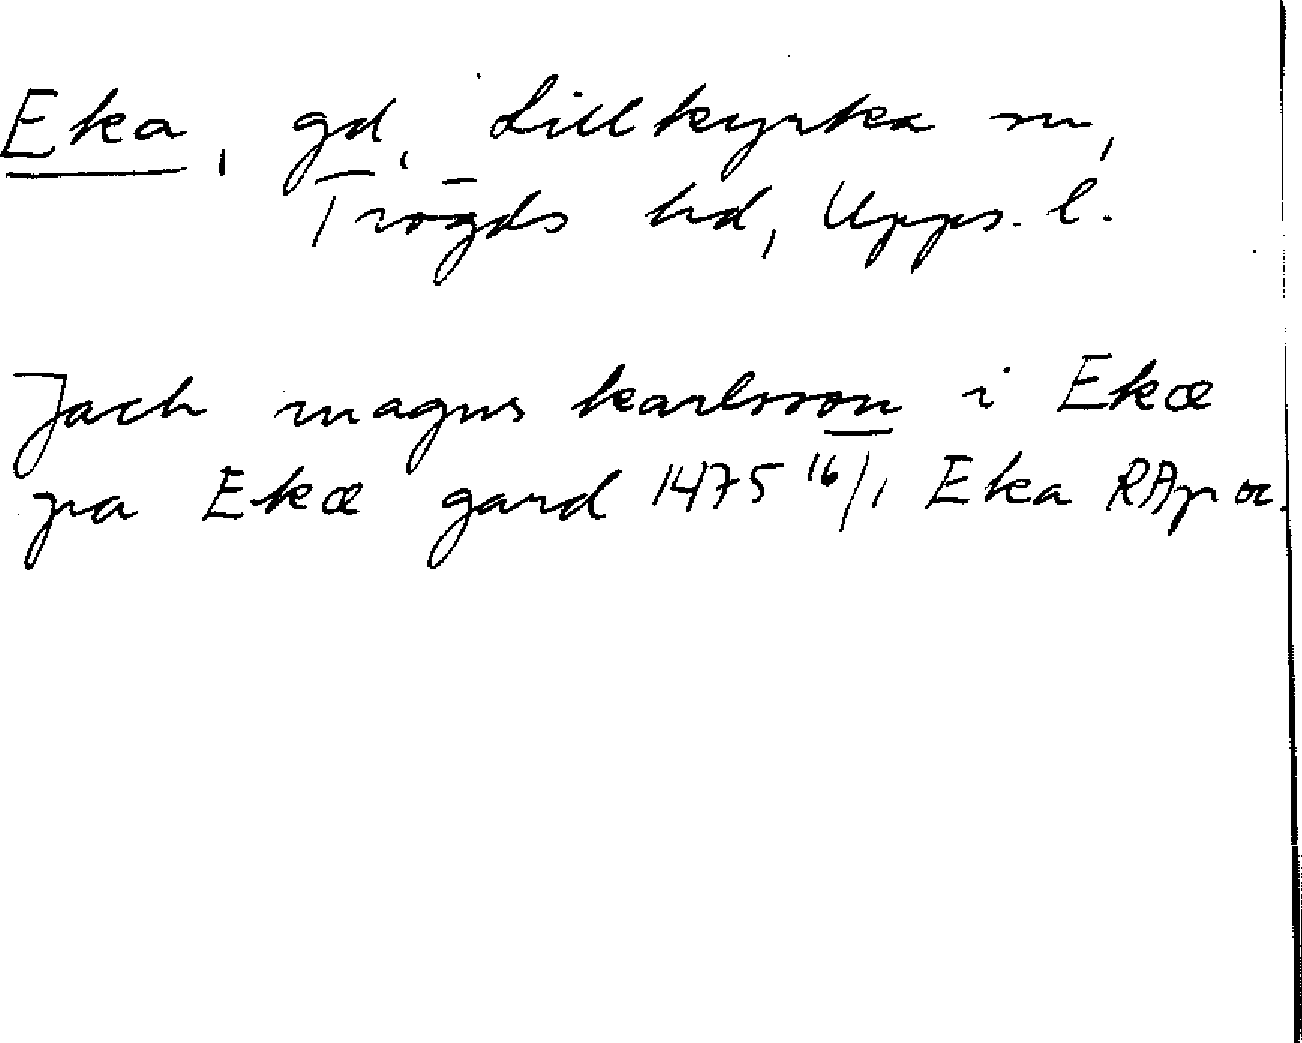 Eka, gd, Lillkyrka sn,
Trögds hd, Upps. l.
Jach magns karlsson i Ekæ
pa Ekæ gard 1475 16/1 Eka RAp or.